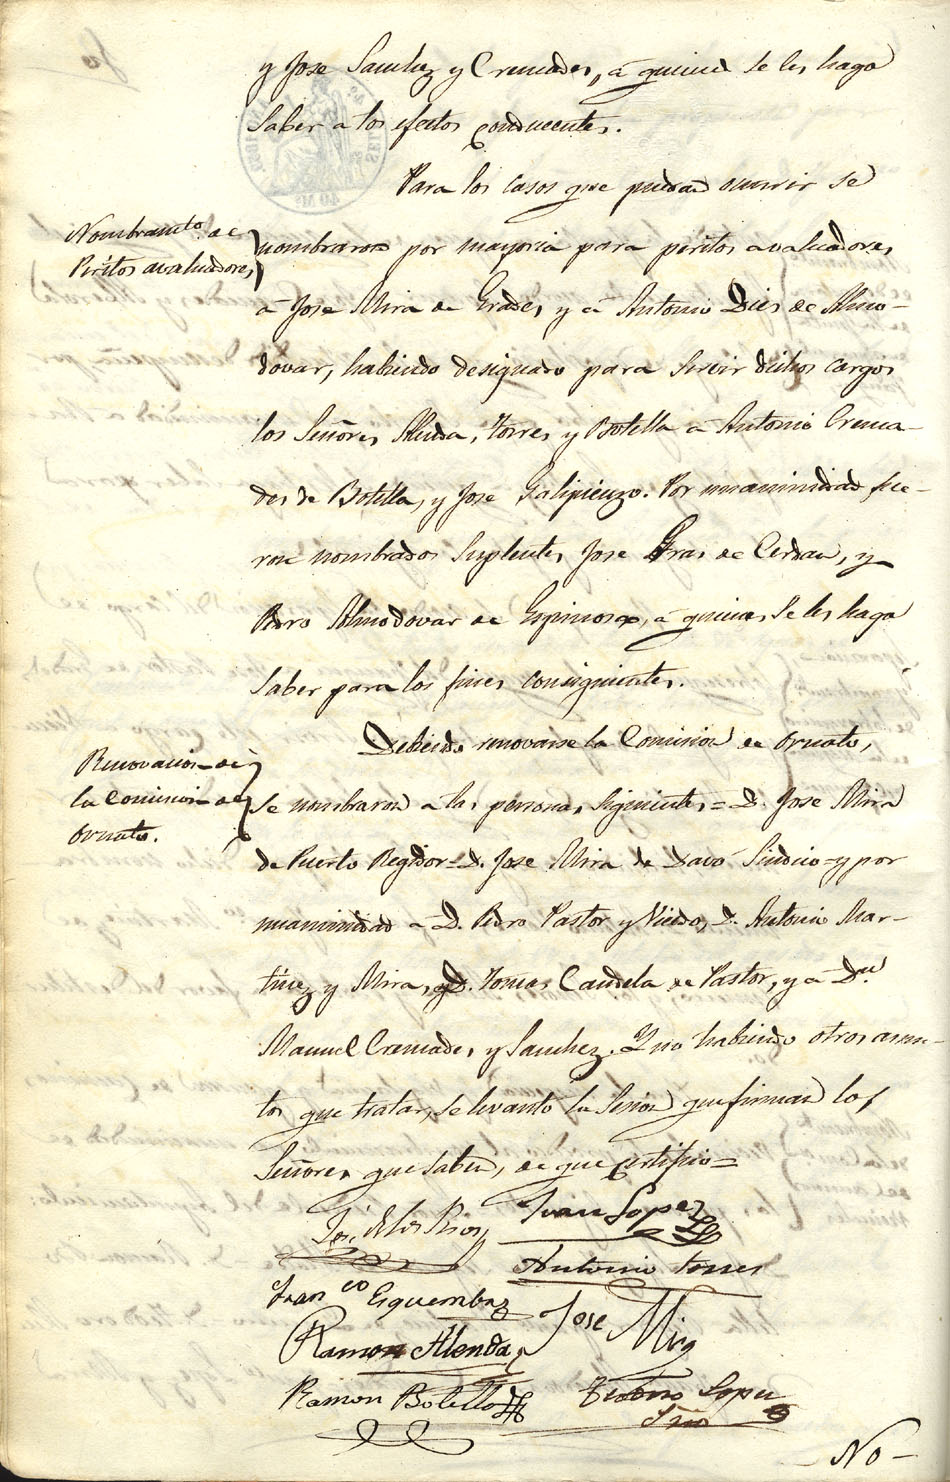 y Jose Sanchez y Cremades, á quienes se les haga
saber a los efectos conducentes.
Para los casos que puedan ocurrir se
Nombramto. de
Peritos avaluadores,
nombraron por mayoria para peritos avaluadores
á Jose Mira de Grades, y á Antonio Dies de Almo-
dovar, habiendo designado para servir dichos cargos
los Señores Alenda, Torres y Botella á Antonio Crema-
des de Botella, y Jose Galipienzo. Por unanimidad fue-
ron nombrados Suplentes Jose Gras de Cerdan, y
Pedro Almodovar de Espinosa, á quienes se les haga
saber para los fines consiguientes.
Renovacion de
la Comision de
Ornato.
Debiendo renovarse la Comision de Ornato,
se nombraron a las personas siguientes = D. Jose Mira
de Puerto Regidor = D. Jose Mira de Davó Sindico = y por
unanimidad á D. Pedro Pastor y Viedo, D. Antonio Mar-
tinez y Mira, D. Tomas Candela de Pastor, y á Dn.
Manuel Cremades y Sanchez. Y no habiendo otros asun-
tos que tratar, se levantó la Sesion que firman los
Señores que saben, de que certifico =
Jó. de los Rios
Juan Lopez
Antonio Torres
Franco Esquembre
Jose Mira
Ramon Alenda
Ramon Botella
Teodoro Lopez
Srio
No-